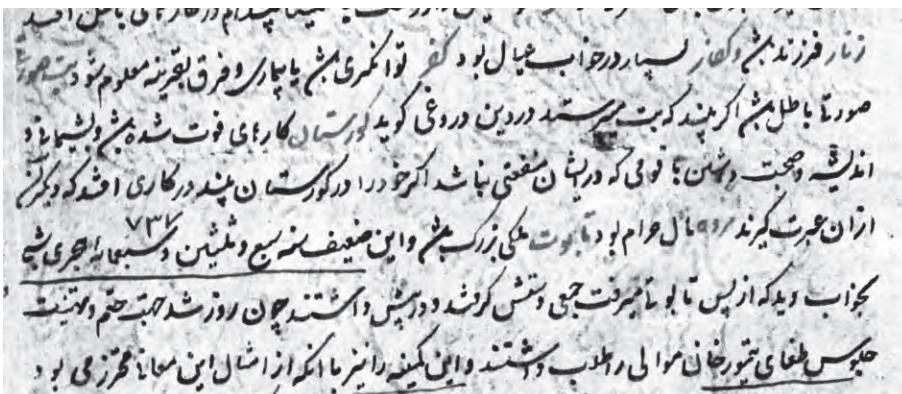 زنار فرزند بود و کفار بسیار در خواب عیال بود کفر توانگری باشد یا بیماری و فرق بقرینه معلوم شود بت
صورتها باطل باشد اگر بیند که بت میپرستد در دین دروغی گوید کورستان کارهای فوت شده باشد و پشیمانی و
اندیشه و صحبت داشتن با قومی که در ایشان منفعتی نباشد اگر خود را در کورستان بیند در کاری افتد که دیگران
ازان عبرت گیرند مرده مال حرام بود تابوت ملکی بزرک باشد و این ضعیف سنه سبع و ثلثین و سبعمایه هجری
۷۳۷
بخواب دید که از پس تابوتی میرفت جمعی دستش گرفتند و در پیش داشتند چون روز شد جهت ختم و تهنیت
جلوس طغای تیمور خان موالی را طلب داشتند و این کمینه را نیز با آنکه از امثال این معانی محترز می بود